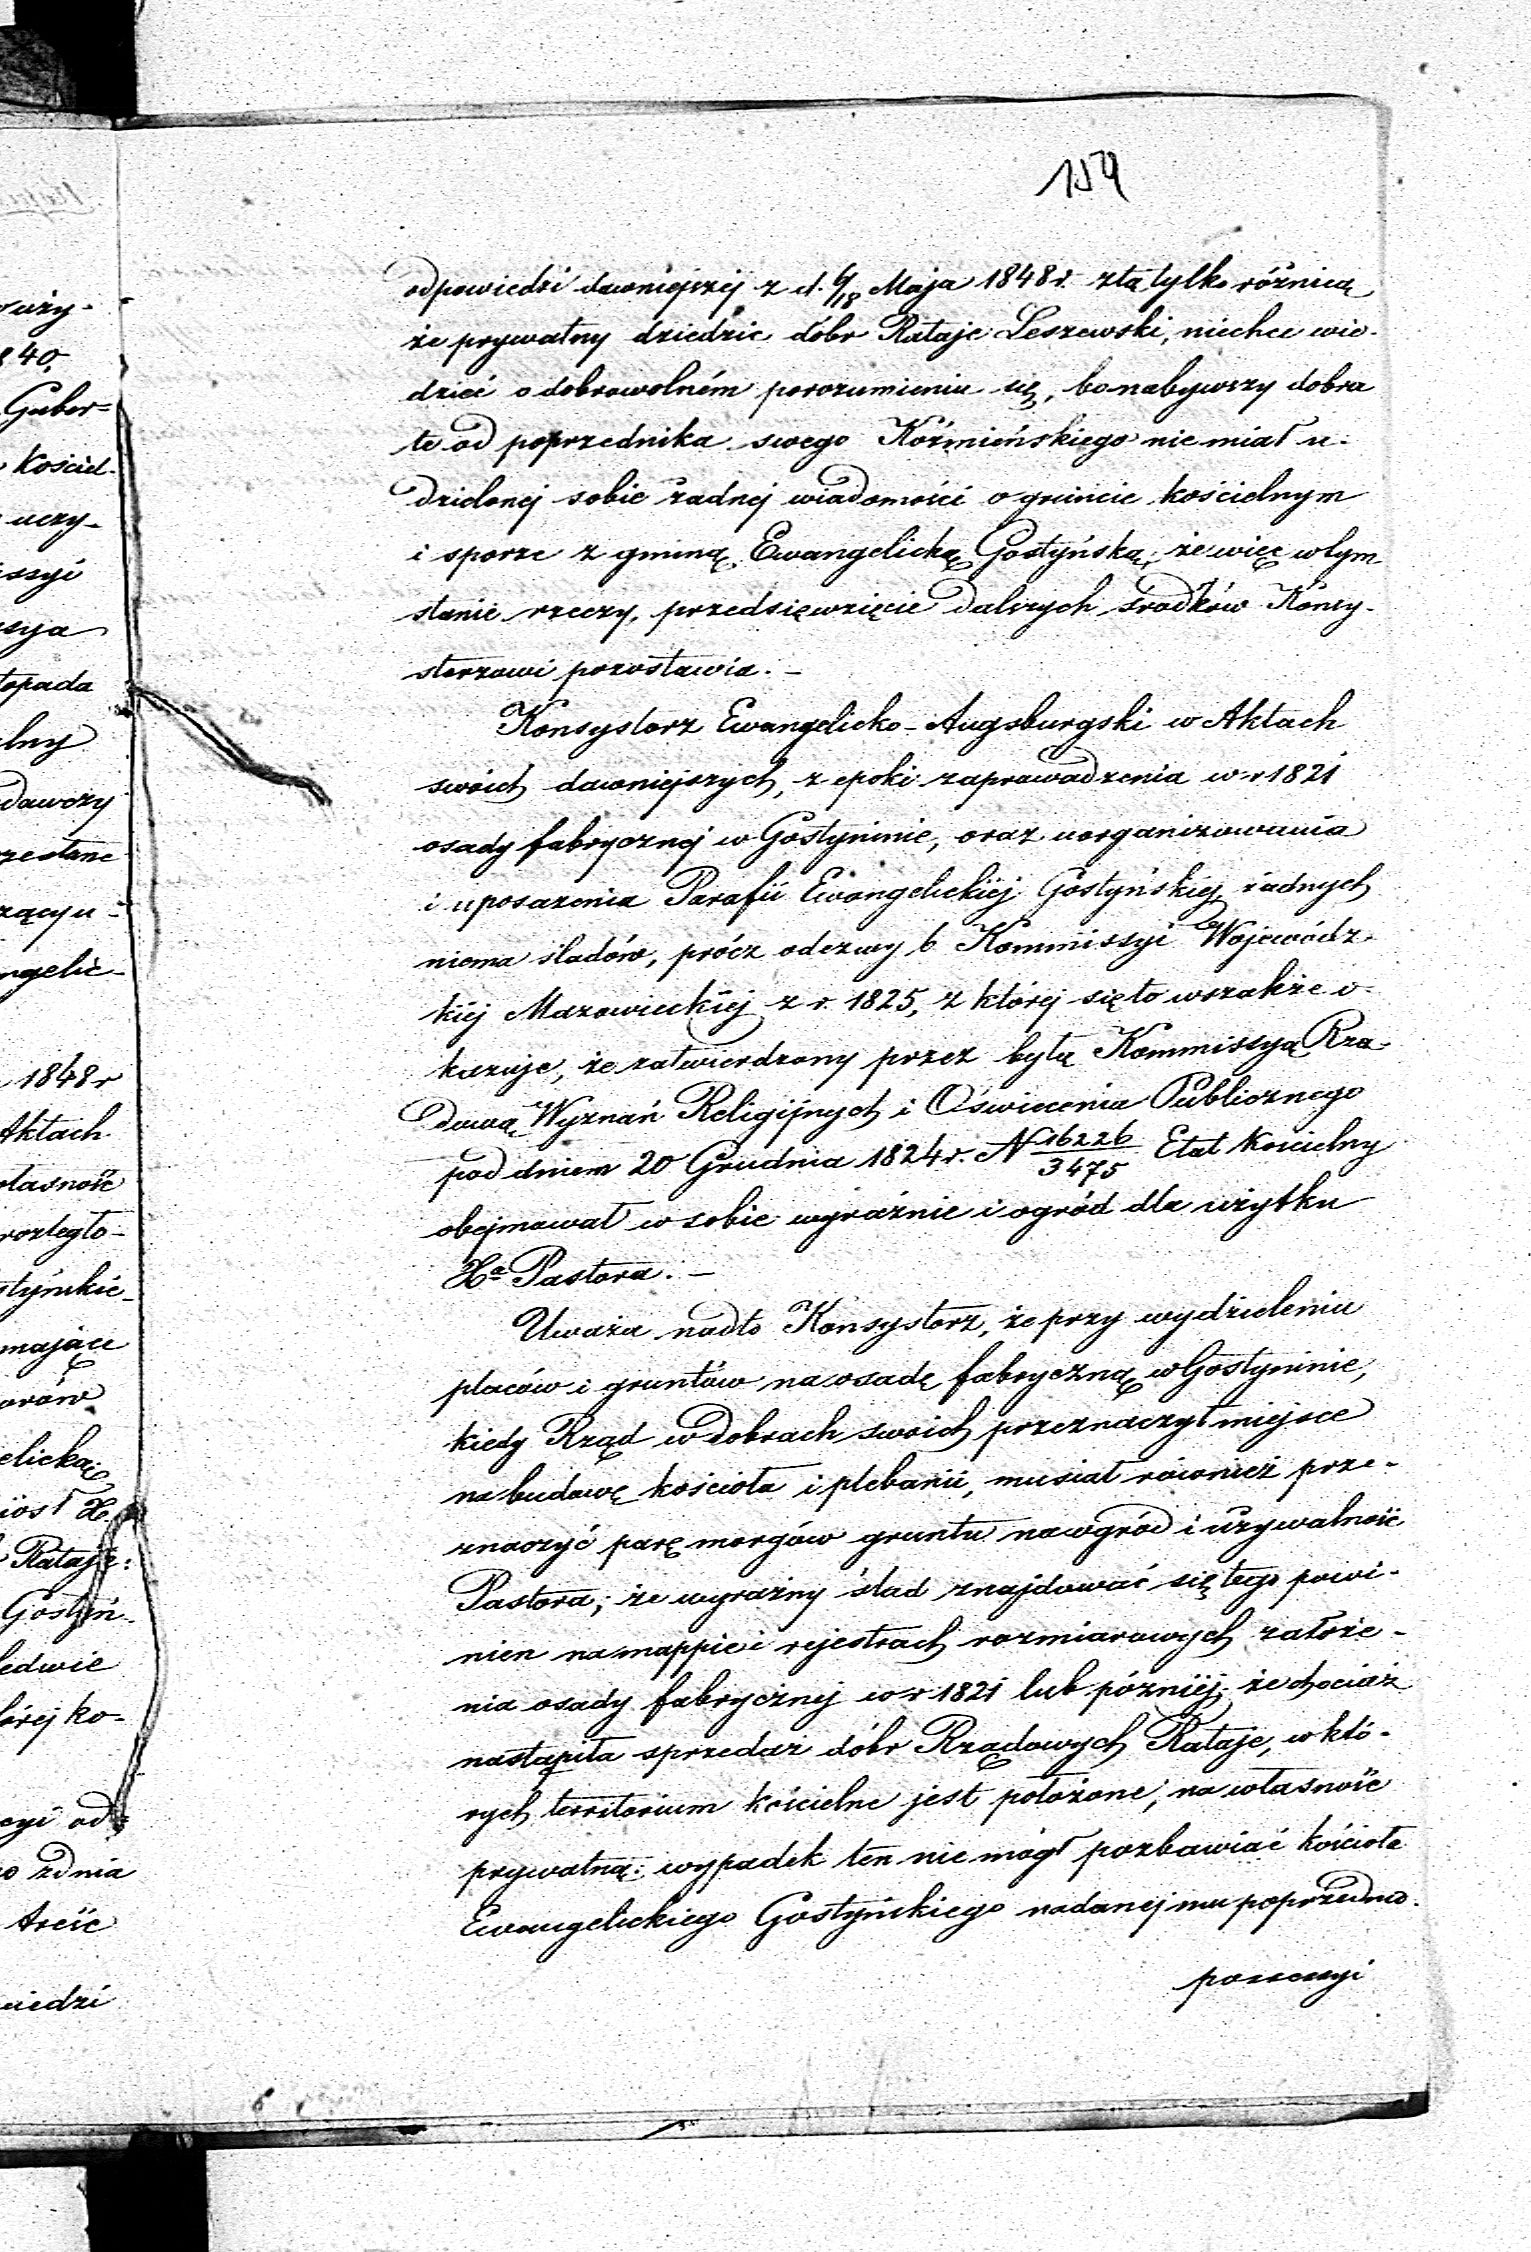 159
odpowiedzi dawniejszej z d. 6/18 Maja 1848 r. z tą tylko różnicą
że prywatny dziedzic dóbr Rataje Leszewski, niechce wie-
dzieć o dobrowolném porozumieniu się, bo nabywszy dobra
te od poprzednika swego Koźmińskiego nie miał u-
dzielonej sobie żadnej wiadomości o gruncie kościelnym
i sporze z gminą Ewangelicką Gostyńską; że więc w tym
stanie rzeczy, przedsięwzięcie dalszych środków Konsy-
storzowi pozostawia. –
Konsystorz Ewangelicko-Augsburgski w Aktach
swoich dawniejszych, z epoki zaprowadzenia w r 1821
osady fabrycznej w Gostyninie, oraz uorganizowania
i uposażenia Parafii Ewangelickiej Gostyńskiej żadnych
niema śladów, prócz odezwy b. Kommissyi Wojewódz-
kiej Mazowieckiej z r. 1825, z której się to wszakże o-
kazuje, że zatwierdzony przez byłą Kommissyą Rzą-
dową Wyznań Religijnych i Oświecenia Publicznego
pod dniem 20 Grudnia 1824 r. N 16226/3475 Etat Kościelny
obejmował w sobie wyraźnie i ogród dla użytku
Xa Pastora. –
Uważa nadto Konsystorz, że przy wydzieleniu
placów i gruntów na osadę fabryczną w Gostyninie,
kiedy Rząd w dobrach swoich przeznaczył miejsce
na budowę kościoła i plebanii, musiał również prze-
znaczyć parę morgów gruntu na ogród i używalność
Pastora; że wyraźny ślad znajdować się tego powi-
nien na mappie i rejestrach rozmiarowych założe-
nia osady fabrycznej w r 1821 lub później; że chociaż
nastąpiła sprzedaż dóbr Rządowych Rataje, w któ-
rych territorium kościelne jest położone, na własność
prywatną: wypadek ten nie mógł pozbawiać kościoła
Ewangelickiego Gostyńskiego nadanej mu poprzednio
possessyi